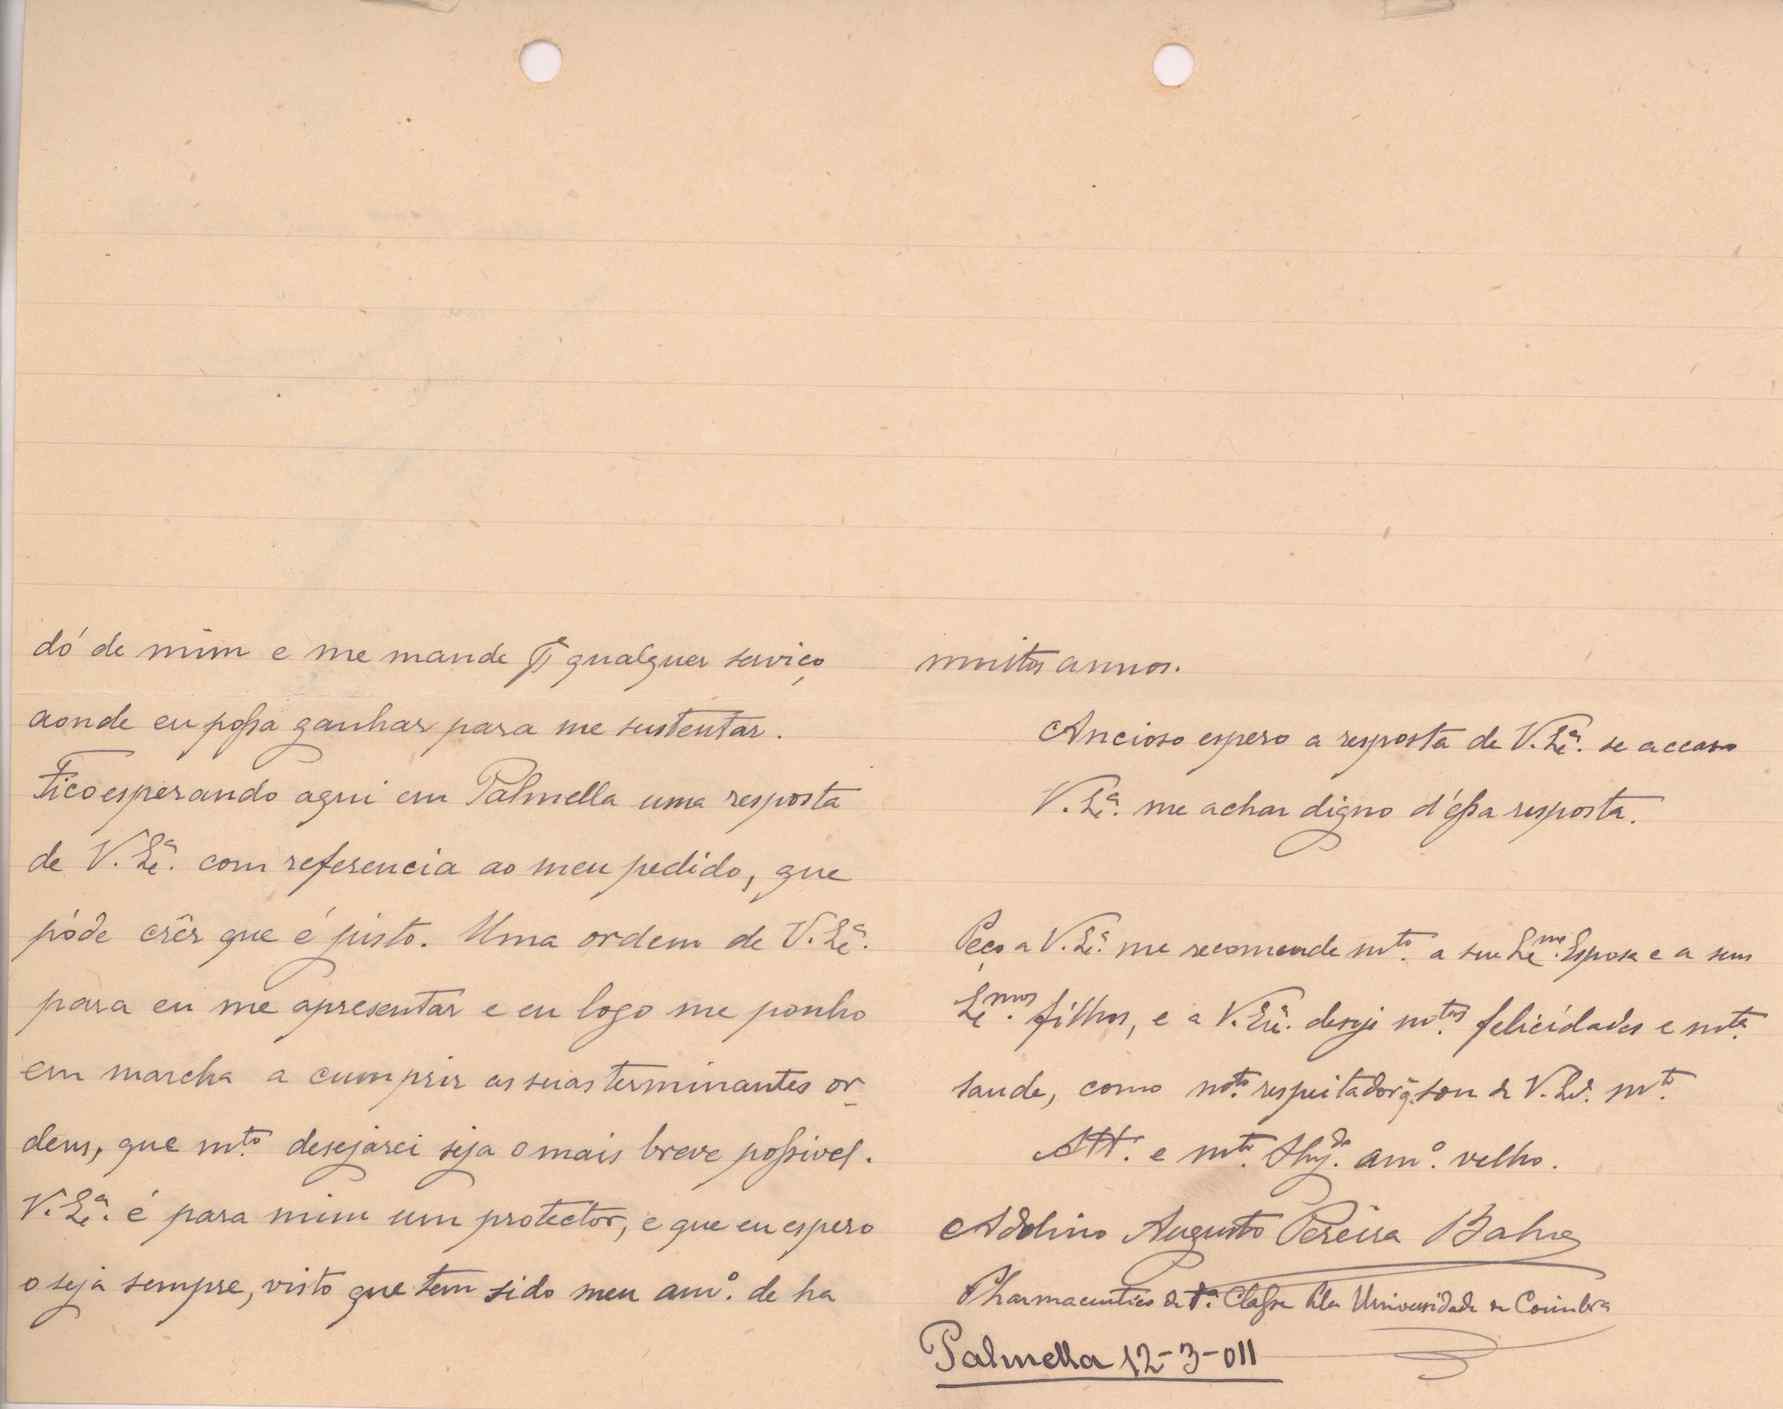 dó de mim e me mande pª qualquer serviço
aonde eu possa ganhar para me sustentar.
Fico esperando aqui em Palmella uma resposta
de V. Exª. com referencia ao meu pedido, que
póde crêr que é justo. Uma ordem de V. Exª.
para eu me apresentar e eu logo me ponho
em marcha a cumprir as suas terminantes or-
dens, que mtº. desejarei seja o mais breve possivel.
V. Exª. é para mim um protector, e que eu espero
o seja sempre, visto que tem sido meu amº. de ha
muitos annos.
Ancioso espero a resposta de V. Exª. se accaso
V. Exª. me achar digno d'éssa resposta.
Peço a V. Exª. me recomende mtº. a sua Exme. Esposa e a seus
Exmos. filhos, e a V. Exª. desejo mtas. felicidades e mta.
saude, como mtº. respeitador q. sou de V. Exª. mtº.
Attº. e mtº. Obgdo. amº. velho.
Adelino Augusto Pereira
Pharmaceutico de 1ª. Classe pela Universidade de Coimbra
Palmella 12-3-011